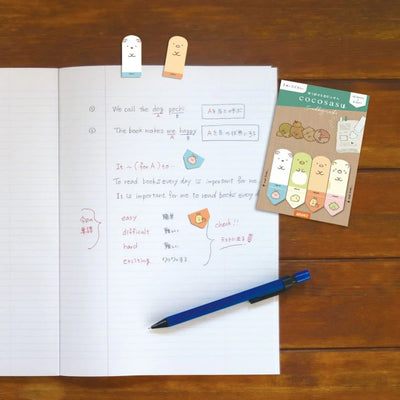 ① We call the dog pochi.
A B
AをBと呼ぶ
② The book makes me happy
A B
AをBの状態にする
It ~ (for A) to…
To read books every day is important for me
It is important for me to read books every
今日の単語
easy 簡単
difficult 難しい
hard 難しい
exciting ワクワクする
check!!
テストに出る
cocosasu